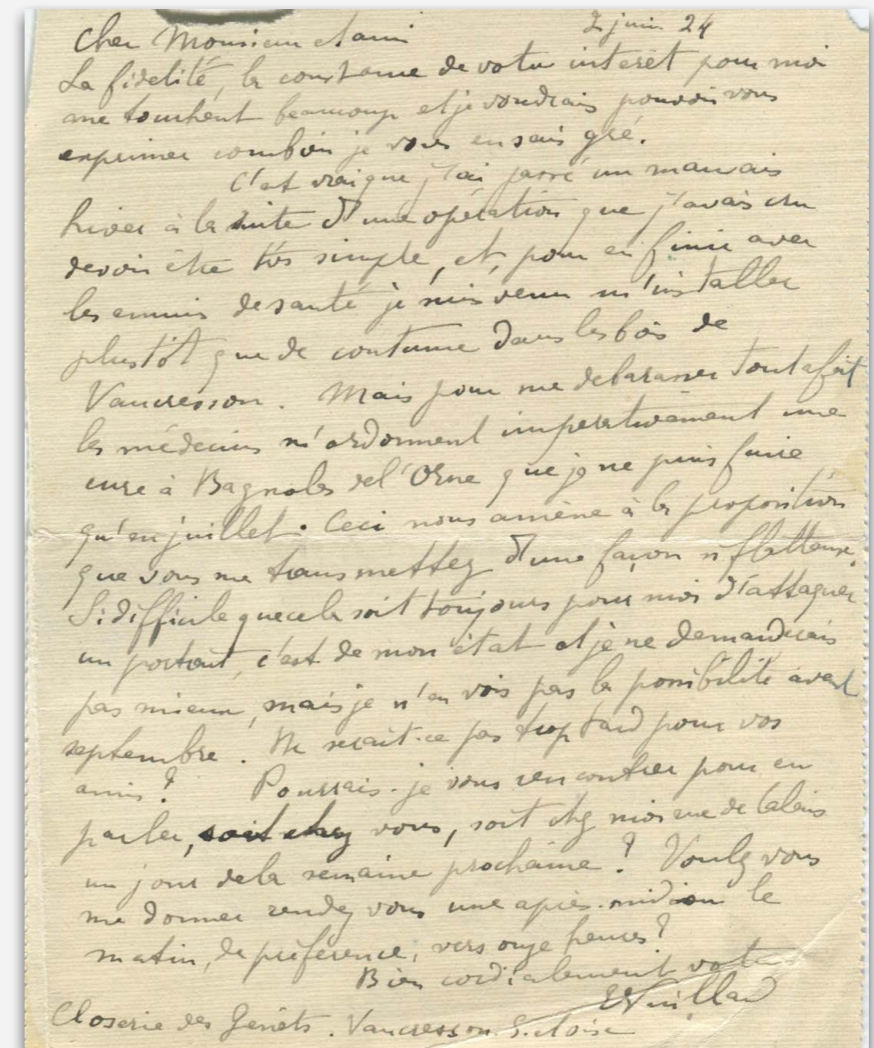 Cher Monsieur et ami juin 24
La fidelité, la constance de votre interêt pour moi
me touchent beaucoup et je voudrais pouvoir vous
exprimer combien je vous en sais gré.
C'est vrai que j'ai passé un mauvais
hiver à la suite d'une opération que j'avais cru
devoir être très simple, et, pour en finir avec
les ennuis de santé je suis venu m'installer
plustôt que de coutume dans les bois de
Vaucresson. Mais pour me debarasser tout à fait
les médecins m'ordonnent imperativement une
cure à Bagnoles de l'Orne que je ne puis faire
qu'en juillet. Ceci nous amène à la proposition
que vous me transmettez d'une façon si flatteuse.
Si difficile que cela soit toujours pour moi d'attaquer
un portrait, c'est de mon état et je ne demanderais
pas mieux, mais je n'en vois pas la possibilité avant
septembre. Ne serait-ce pas trop tard pour vos
amis? Pourrais-je vous rencontrer pour en
parler, soit chez vous, soit chez moi rue de Calais
un jour de la semaine prochaine? Voulez vous
me donner rendez vous une après-midi ou le
matin, de préférence, vers onze heures?
Bien cordialement votre
E Vuillard
Closerie des Genêts. Vaucresson. S. et Oise